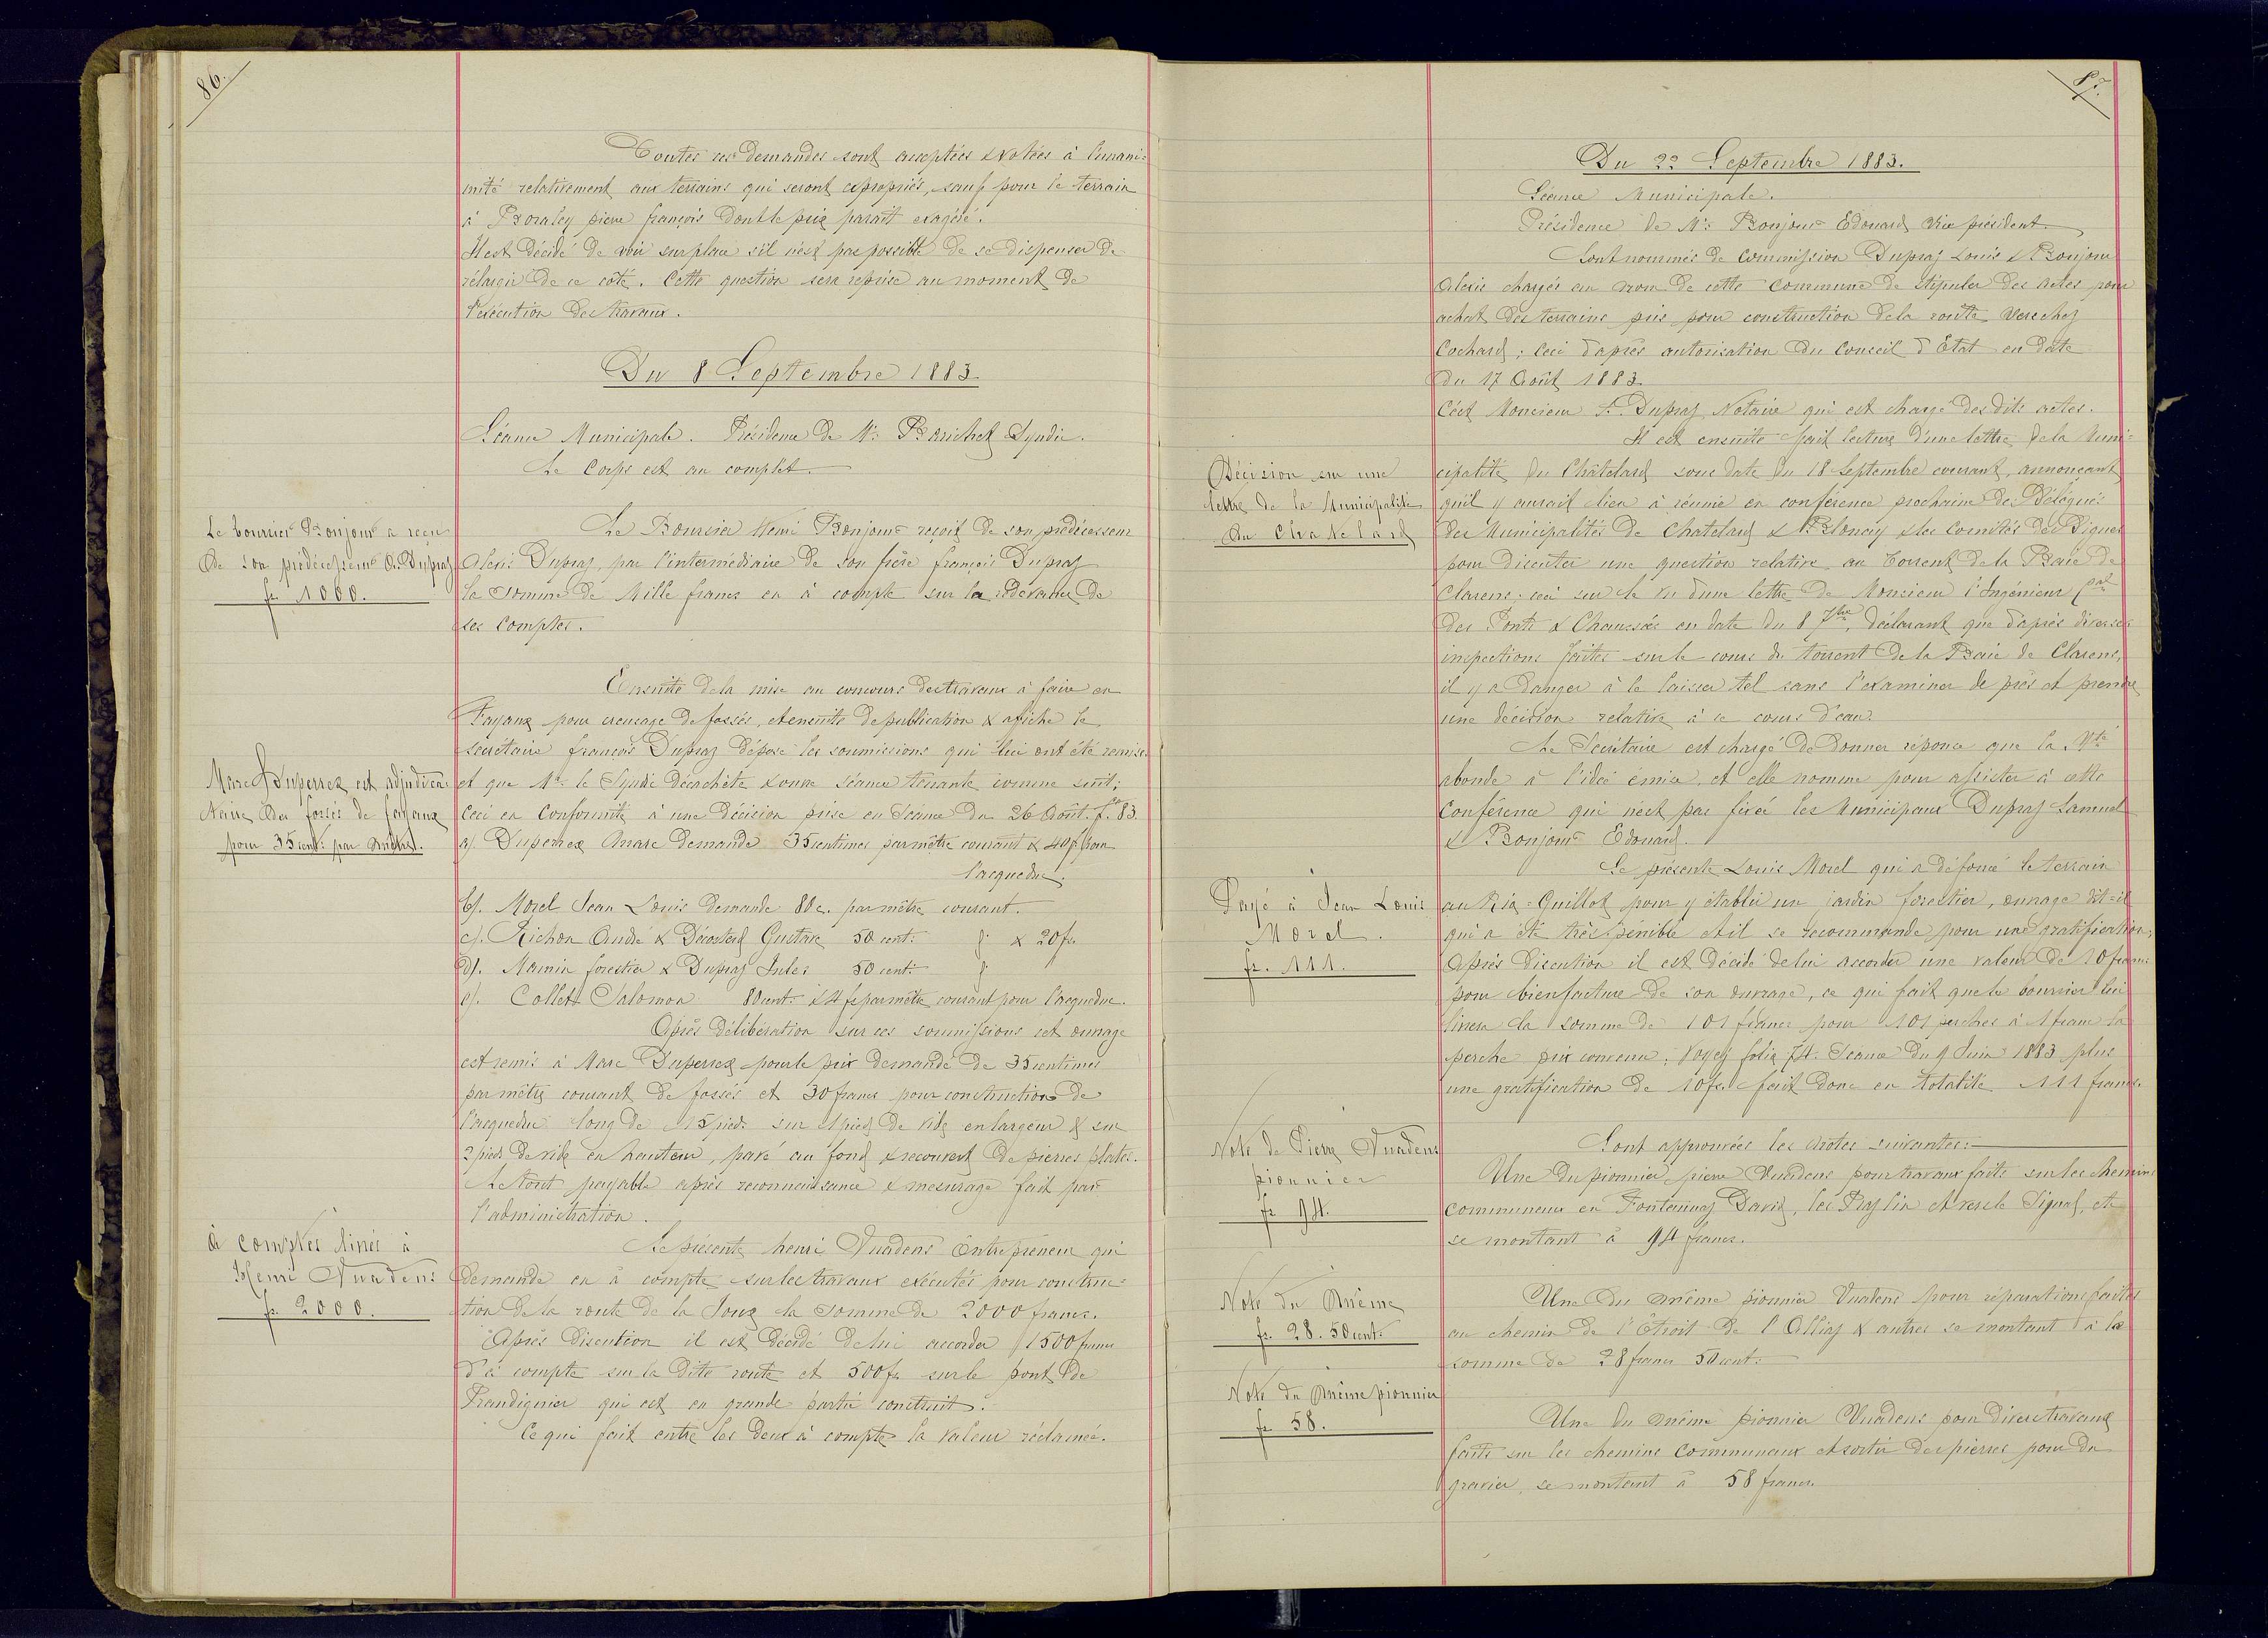 86.
Toutes ces demandes sont acceptées & votées à l'unani=
mité relativement aux terrains qui seront expropriés, sauf pour le terrain
à Boraley pierre françois dont le prix parait exagéré.
Il est décidé de voir sur place s'il n'est pas possible de se dispenser de
rélargir de ce côté. Cette question sera reprise au moment de
l'exécution des travaux.
Du 8 Septembre 1883
Séance Municipale. Présidence de Mr. Borichet Syndic.
Le Corps est au complet.
Le boursier Bonjour a reçu
de son prédécesseur A. Dupraz
fr. 1000.
Le Boursier Henri Bonjour reçoit de son prédécesseur
Alexis Dupraz, par l'intermédiaire de son frère françois Dupraz
la somme de Mille francs en à compte sur la redevance de
ses comptes.
Ensuite de la mise au concours des travaux à faire en
Fayaux pour creusage de fossés, et ensuite de publication & affiche le
secrétaire françois Dupraz dépose les soumissions qui lui ont été remises
Marc Duperrex est adjudica=
taire des fossés de fayaux
pour 35 cent. par mètre.
et que Mr. le Syndic décachète & ouvre séance tenante comme suit;
ceci en conformité à une décision prise en séance du 26 Août. f. 83.
a). Duperrex Marc demande 35 centimes par mètre courant & 40 fr. pour
l'acqueduc.
b). Morel Jean Louis demande 80 c. par mètre courant.
c). Richon André & Décosterd Gustave 50 cent: & 20 fr.
d). Mamin forestier & Dupraz Jules 50 cent:
e). Collet Salomon 80 cent. & 4 fr par mètre courant pour l'acqueduc.
Après délibération sur ces soumissions cet ouvrage
est remis à Marc Duperrex pour le prix demandé de 35 centimes
par mètre courant de fossés et 30 francs pour construction de
l'acqueduc long de 15 pieds sur 1 pied de vide en largeur & sur
2 pieds de vide en hauteur, pavé au fond & recouvert de pierres plates.
Le tout payable après reconnaissance & mesurage fait par
l'administration.
à comptes livrés à
Henri Vuadens
fr. 2000.
Se présente henri Vuadens entrepreneur qui
demande en à compte sur les travaux exécutés pour construc=
tion de la route de la Joux la somme de 2000 francs.
Après discution il est décidé de lui accorder 1500 francs
d'à compte sur la dite route et 500 fr. sur le pont de
Prandiginier qui est en grande partie construit.
Ce qui fait entre les deux à comptes la valeur réclamée.
87.
Du 22 Septembre 1883.
Séance Municipale.
Présidence de Mr. Bonjour Edouard Vice président.
Sont nommés de Commission Dupraz Louis & Bonjour
Alexis chargés au nom de cette Commune de stipuler des actes pour
achat des terrains pris pour construction de la route vers chez
Cochard; ceci d'après autorisation du Conseil d'Etat en date
du 17 Août 1883.
C'est Monsieur Fs. Dupraz Notaire qui est chargé des dits actes.
Il est ensuite fait lecture d'une lettre de la Muni=
Décision sur une
lettre de la Municipalité
du Chatelard
cipalité du Châtelard sous date du 18 Septembre courant, annonçant
qu'il y aurait lieu à réunir en conférence prochaine des Délégués
des Municipalités de Chatelard & Blonay & les Comités des Digues
pour discuter une question relative au torrent de la Baie de
Clarens; ceci sur le vu d'une lettre de Monsieur l'Ingénieur Cal
des Ponts & Chaussées en date du 8 7bre, déclarant que d'après diverses
inspections faites sur le cours du torrent de la Baie de Clarens,
il y a danger à le laisser tel sans l'examiner de près et prendre
une décision relative à ce cours d'eau.
Le Secrétaire est chargé de donner réponce que la Mté
abonde à l'idée émise, et elle nomme pour assister à cette
Conférence qui n'est pas fixée les Municipaux Dupraz Samuel
& Bonjour Edouard.
Se présente Louis Morel qui a défoncé le terrain
Payé à Jean Louis
Morel.
fr. 111.
au Rix=Guillot pour y établir un jardin forestier, ouvrage dit=il
qui a été très pénible et il se recommande pour une gratification;
Après discution il est décidé de lui accorder une valeur de 10 francs
pour bienfacture de son ouvrage, ce qui fait que le boursier lui
livrera la somme de 101 francs pour 101 perches à 1 franc la
perche prix convenu; voyez folio 74. Séance du 9 Juin 1883 plus
une gratification de 10 fr. fait donc en totalité 111 francs.
Sont approuvées les notes suivantes:
Note de Pierre Vuadens
pionnier
fr 94.
Une du pionnier pierre Vuadens pour travaux faits sur les chemins
communeaux en Fontannaz David, les Praz lin et vers le Signal, etc
se montant à 94 francs.
Note du même
fr. 28. 50 cent.
Une du même pionnier Vuadens pour réparations faites
au chemin de l'Etroit de l'Alliaz & autres se montant à la
somme de 28 francs 50 cent:
Note du même pionnier
fr 58.
Une du même pionnier Vuadens pour divers travaux
faits sur les chemins Communaux et sortir des pierres pour du
gravier, se montant à 58 francs.